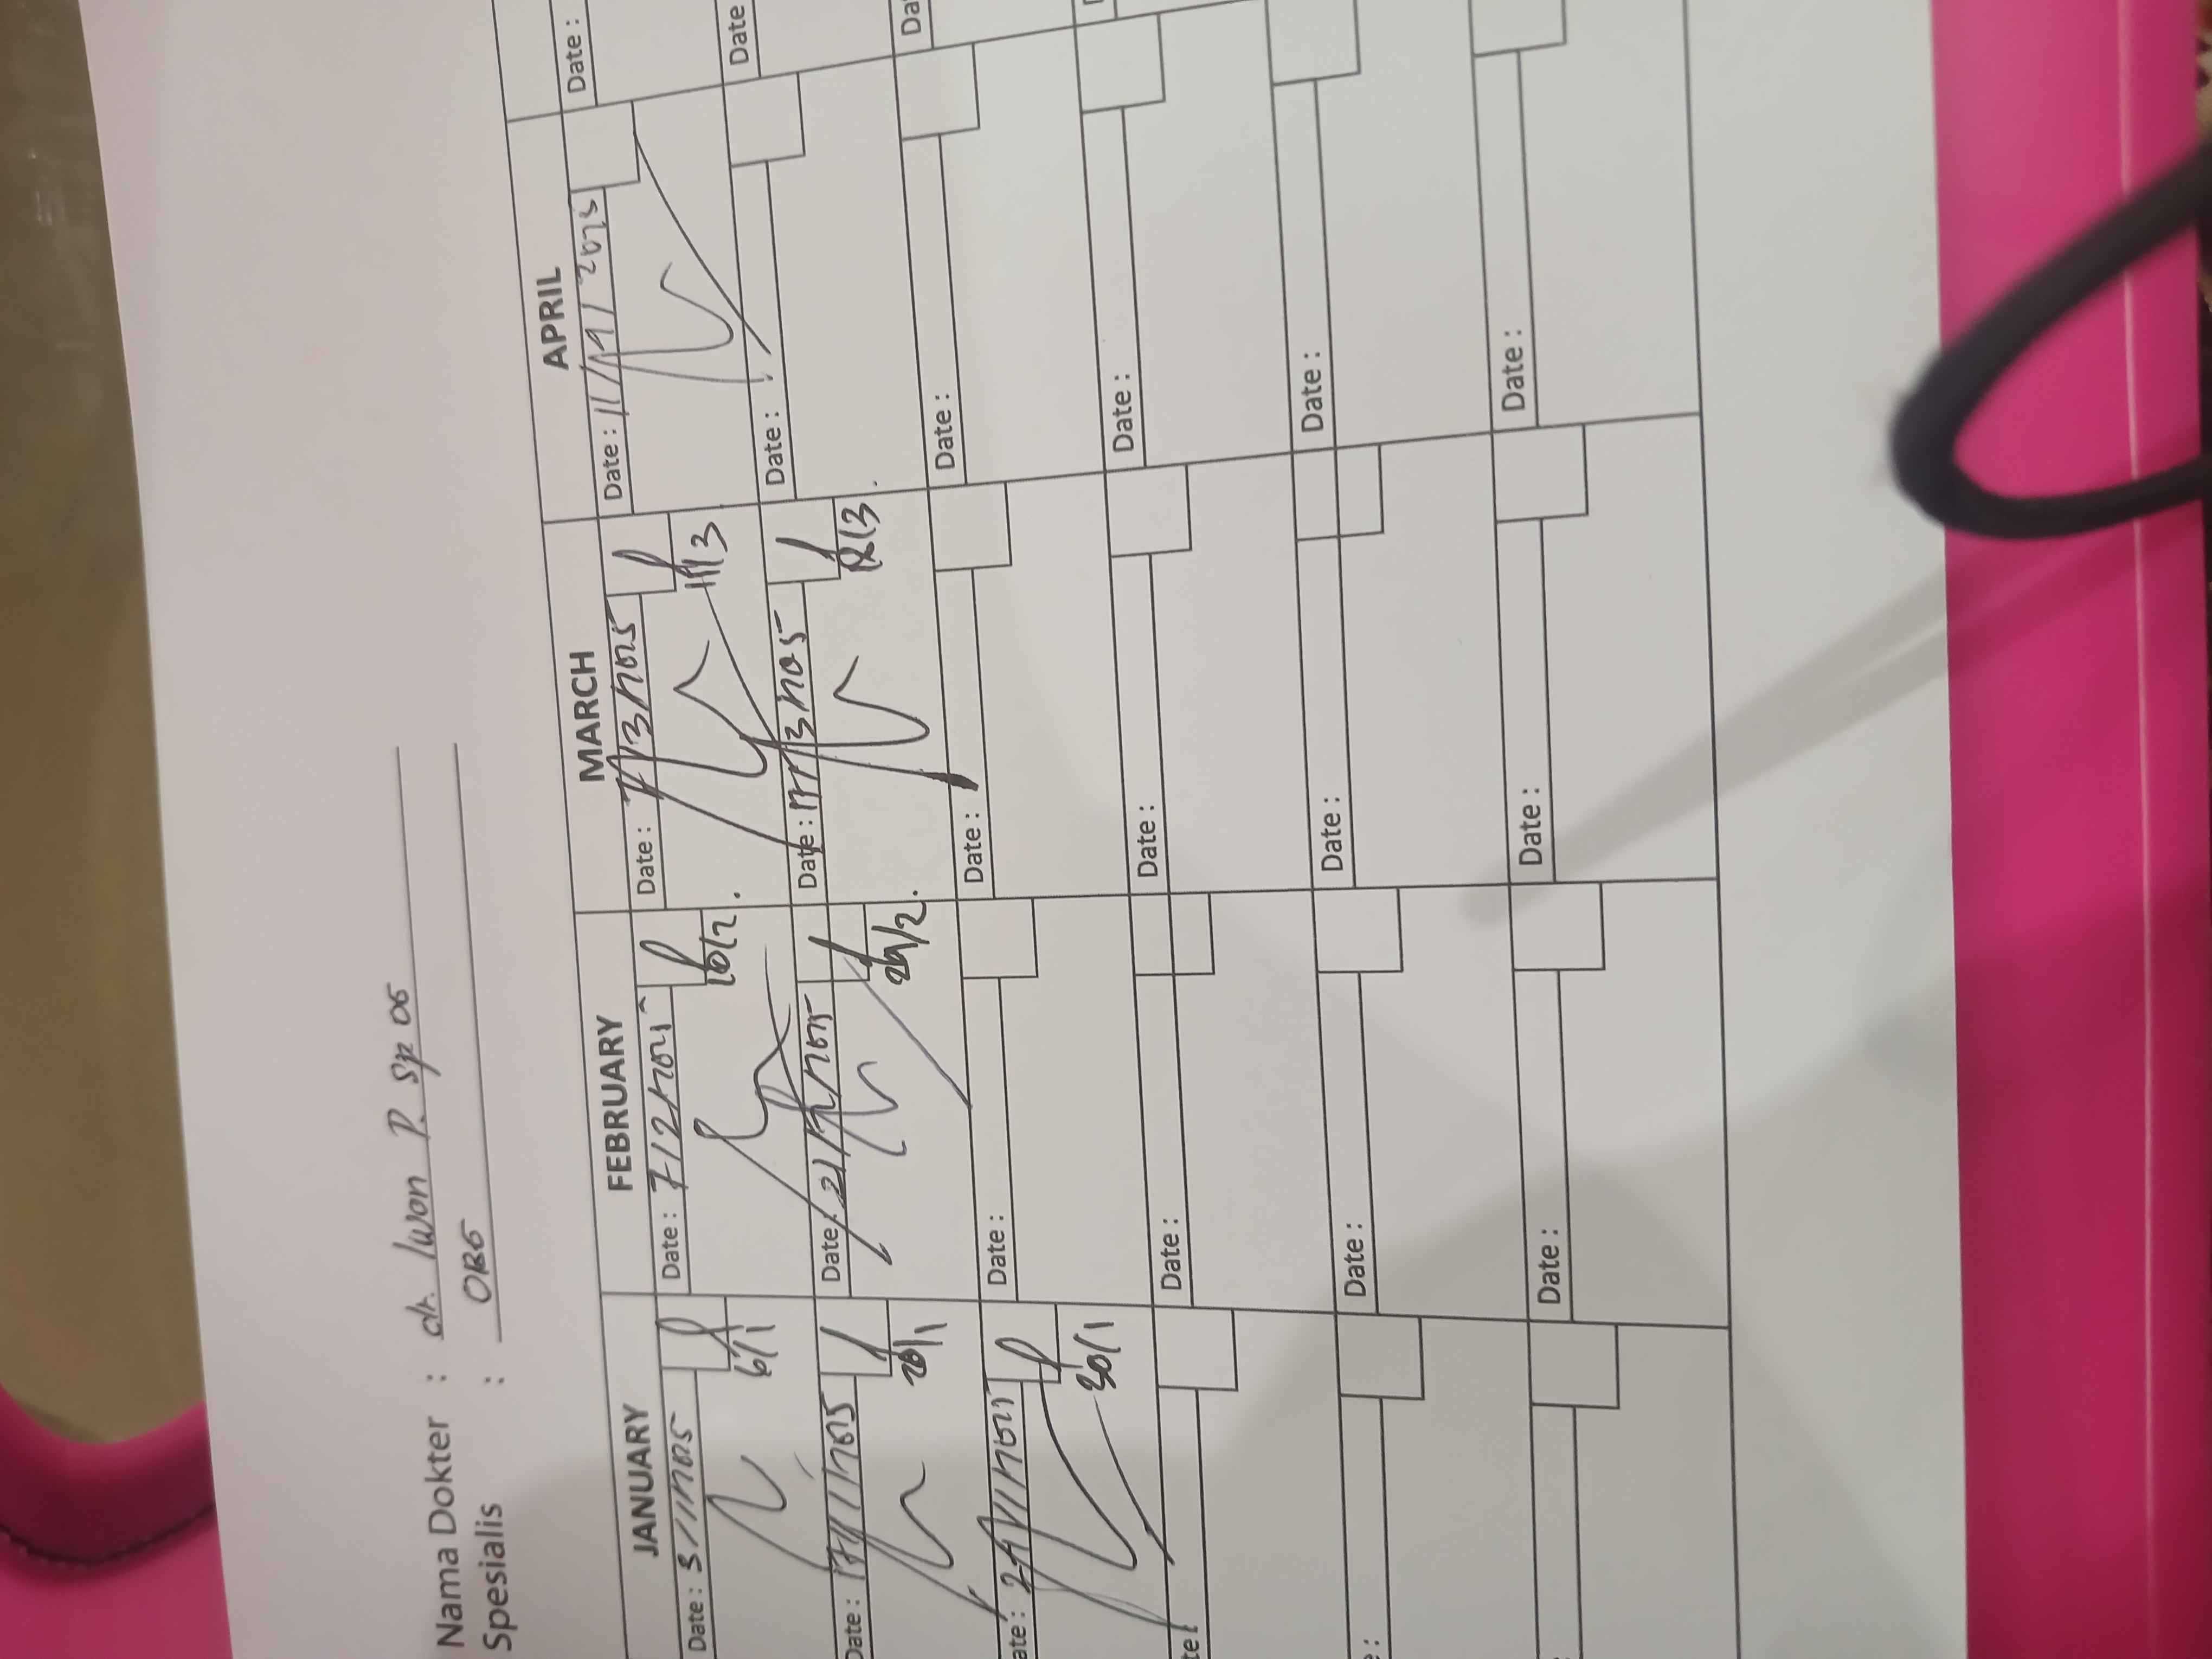 Nama Dokter : dr. Iwan P. Sp OG
Spesialis : OBG
JANUARY FEBRUARY MARCH APRIL
Date : 3/1/2025 Date : 7/2/2025 Date : 7/3/2025 Date : 11/4/2025 Date :
6/1 10/2. 11/3
Date : 17/1/2025 Date : 21/2/2025 Date : 17/3/2025 Date : Date
20/1 24/2. 18/3.
ate : 24/1/2025 Date : Date : Date : Da
30/1
te : Date : Date : Date : D
e : Date : Date : Date :
Date : Date : Date :